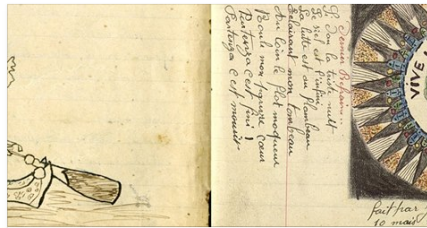 Dernier
la triste nuit
Le ciel est l'infini
La lutte est un flambeau
Eclairant mon tombeau
Au loin le flot moqueur
Roule mon pauvre cœur
Partenza c'est fini !
Partenza c'est mourir
VIVE
fait par
10 mai